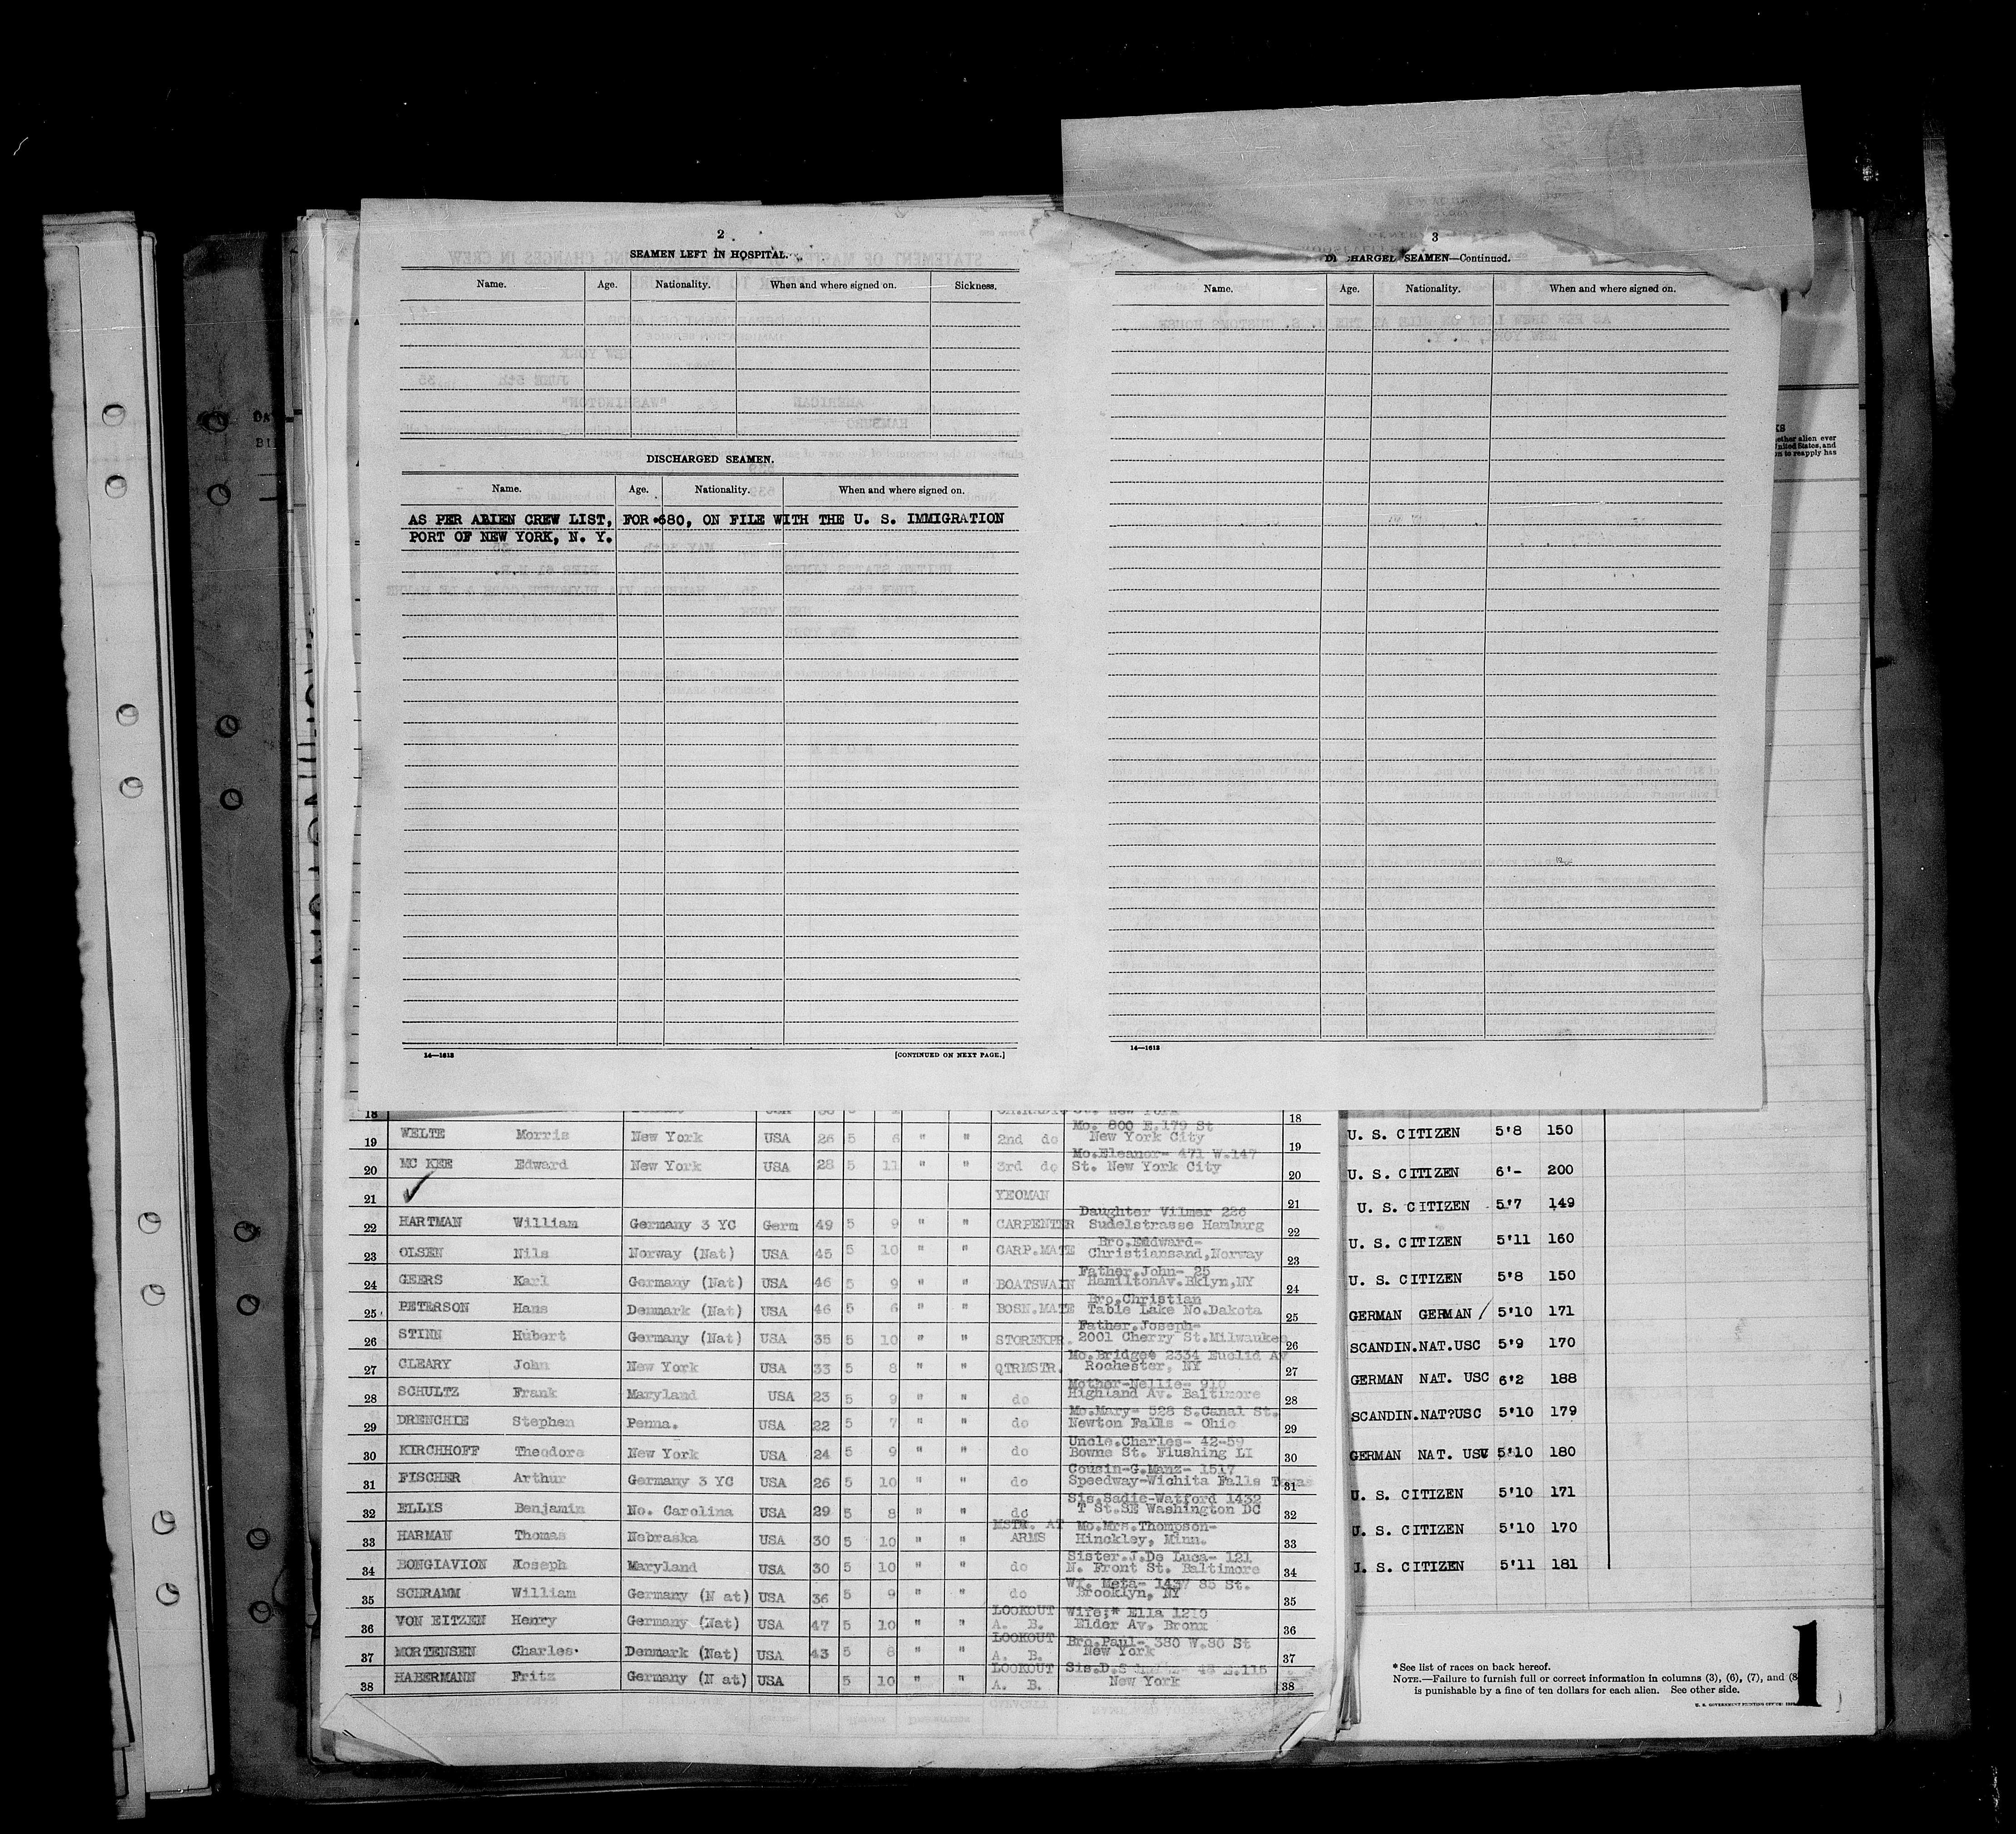 2
SEAMEN LEFT IN HOSPITAL.
Name. Age. Nationality. When and where signed on. Sickness.
DISCHARGED SEAMEN.
Name. Age. Nationality. When and where signed on.
AS PER ABIEN CREW LIST, FOR 680, ON FILE WITH THE U. S. IMMIGRATION
PORT OF NEW YORK, N. Y.
14—1613 [CONTINUED ON NEXT PAGE.]
3
SEAMEN—Continued.
Name. Age. Nationality. When and where signed on.
14—1613
18 18
19 WELTE Morris New York USA 26 5 6 " " 2nd do Mo. 800 E.179 St
New York City 19
20 MC KEE Edward New York USA 28 5 11 " " 3rd do Mo.Eleanor- 471 W.147
St. New York City 20
21 YEOMAN 21
22 HARTMAN William Germany 3 YC Germ 49 5 9 " " CARPENTER Daughter Vilmer 226
Sudelstrasse Hamburg 22
23 OLSEN Nils Norway (Nat) USA 45 5 10 " " CARP.MATE Bro.Eddward-
Christiansand,Norway 23
24 GEERS Karl Germany (Nat) USA 46 5 9 " " BOATSWAIN Father.John- 25
HamiltonAv.Bklyn,NY 24
25 PETERSON Hans Denmark (Nat) USA 46 5 6 " " BOSN.MATE Bro.Christian
Table Lake No.Dakota 25
26 STINN Hubert Germany (Nat) USA 35 5 10 " " STOREKPR. Father.Joseph-
2001 Cherry St.Milwaukee 26
27 CLEARY John New York USA 33 5 8 " " QTRMSTR. Mo.Bridget 2334 Euclid Av
Rochester, NY 27
28 SCHULTZ Frank Maryland USA 23 5 9 " " do Mother-Nellie- 910
Highland Av. Baltimore 28
29 DRENCHIE Stephen Penna. USA 22 5 7 " " do Mo.Mary- 528 S.Canal St.
Newton Falls - Ohio 29
30 KIRCHHOFF Theodore New York USA 24 5 9 " " do Uncle.Charles- 42-59
Bowne St. Flushing LI 30
31 FISCHER Arthur Germany 3 YC USA 26 5 10 " " do Cousin-G.Manz- 1517
Speedway-Wichita Falls Texas 31
32 ELLIS Benjamin No. Carolina USA 29 5 8 " " do Sis.Sadie-Watford 1432
T St.SE Washington DC 32
33 HARMAN Thomas Nebraska USA 30 5 10 " " MSTR. AT ARMS Mo.Mrs.Thompson-
Hinckley, Minn. 33
34 BONGIAVION Aoseph Maryland USA 30 5 10 " " do Sister.J.De Luca- 121
N. Front St. Baltimore 34
35 SCHRAMM William Germany (N at) USA 36 5 9 " " do Wf. Meta- 1437 85 St.
Brooklyn, NY 35
36 VON EITZEN Henry Germany (Nat) USA 47 5 10 " " LOOKOUT A. B. Wife;* Ella 1210
Elder Av. Bronx 36
37 MORTENSEN Charles Denmark (Nat) USA 43 5 8 " " LOOKOUT A. B. Bro.Paul- 380 W.80 St
New York 37
38 HABERMANN Fritz Germany (N at) USA 5 10 " " LOOKOUT A. B. Sis.D. E.115
New York 38
U. S. CITIZEN 5'8 150
U. S. CITIZEN 6'- 200
U. S. CITIZEN 5'7 149
U. S. CITIZEN 5'11 160
U. S. CITIZEN 5'8 150
GERMAN GERMAN / 5'10 171
SCANDIN.NAT.USC 5'9 170
GERMAN NAT. USC 6'2 188
SCANDIN.NAT?USC 5'10 179
GERMAN NAT. USC 5'10 180
U. S. CITIZEN 5'10 171
U. S. CITIZEN 5'10 170
U. S. CITIZEN 5'11 181
*See list of races on back hereof.
NOTE.—Failure to furnish full or correct information in columns (3), (6), (7), and (8
is punishable by a fine of ten dollars for each alien. See other side.
1